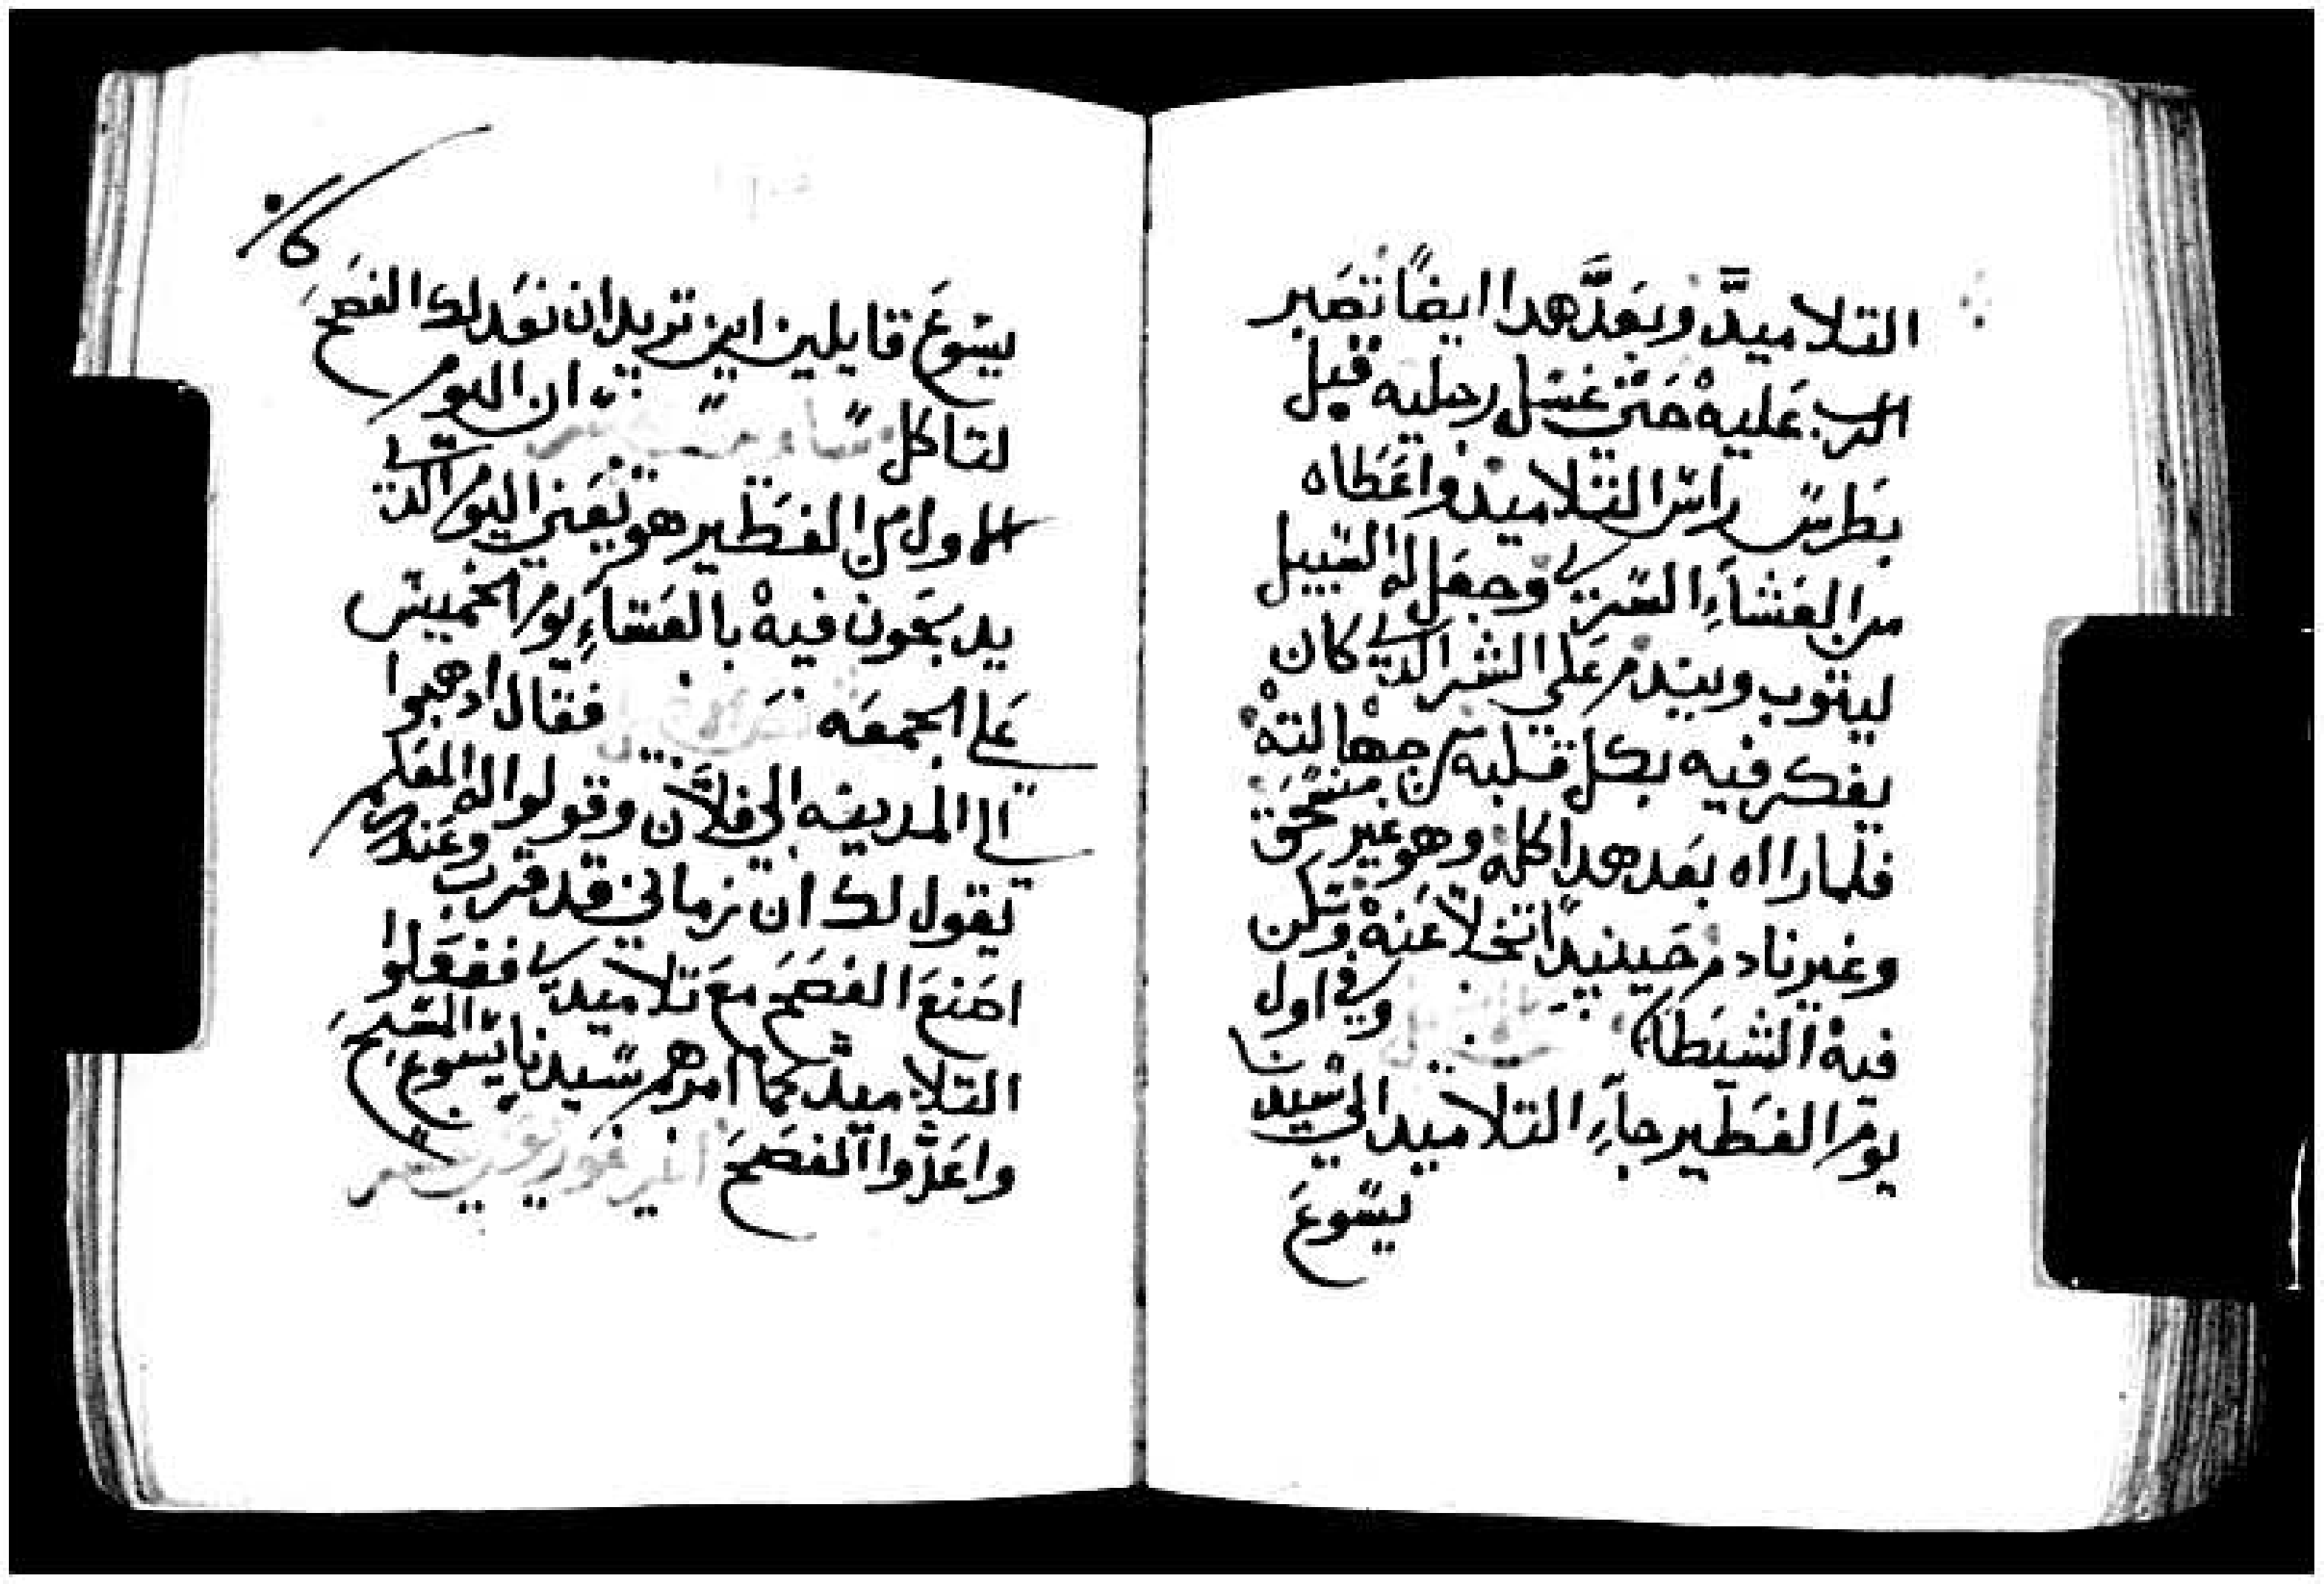 التلاميد وبعد هدا ايضا تصبر
الرب عليه حتي غسل رجليه قبل
بطرس راس التلاميد واعطاه
من العشاء السري وجعل له السبيل
ليتوب ويندم علي الشر الدي كان
يفكر فيه بكل قلبه من جهالته
فلما راه بعد هدا كله وهو غير مستحق
وغير نادم حينيد اتخلا عنه وتمكن
فيه الشيطان وفي اول
يوم الفطير جاء التلاميد الي سيدنا
يسوع
يسوع قايلين اين تريد ان نعد لك الفصح
لتاكل ان اليوم
الاول من الفطير هو يعني اليوم الدي
يدبحون فيه بالعشاء يوم الخميس
علي الجمعه فقال ادهبوا
الي المدينه الي فلان وقولوا له المعلم
يقول لك ان زماني قد قرب وعندك
اصنع الفصح مع تلاميدي ففعلوا
التلاميد كما امرهم سيدنا يسوع المسيح
واعدوا الفصح